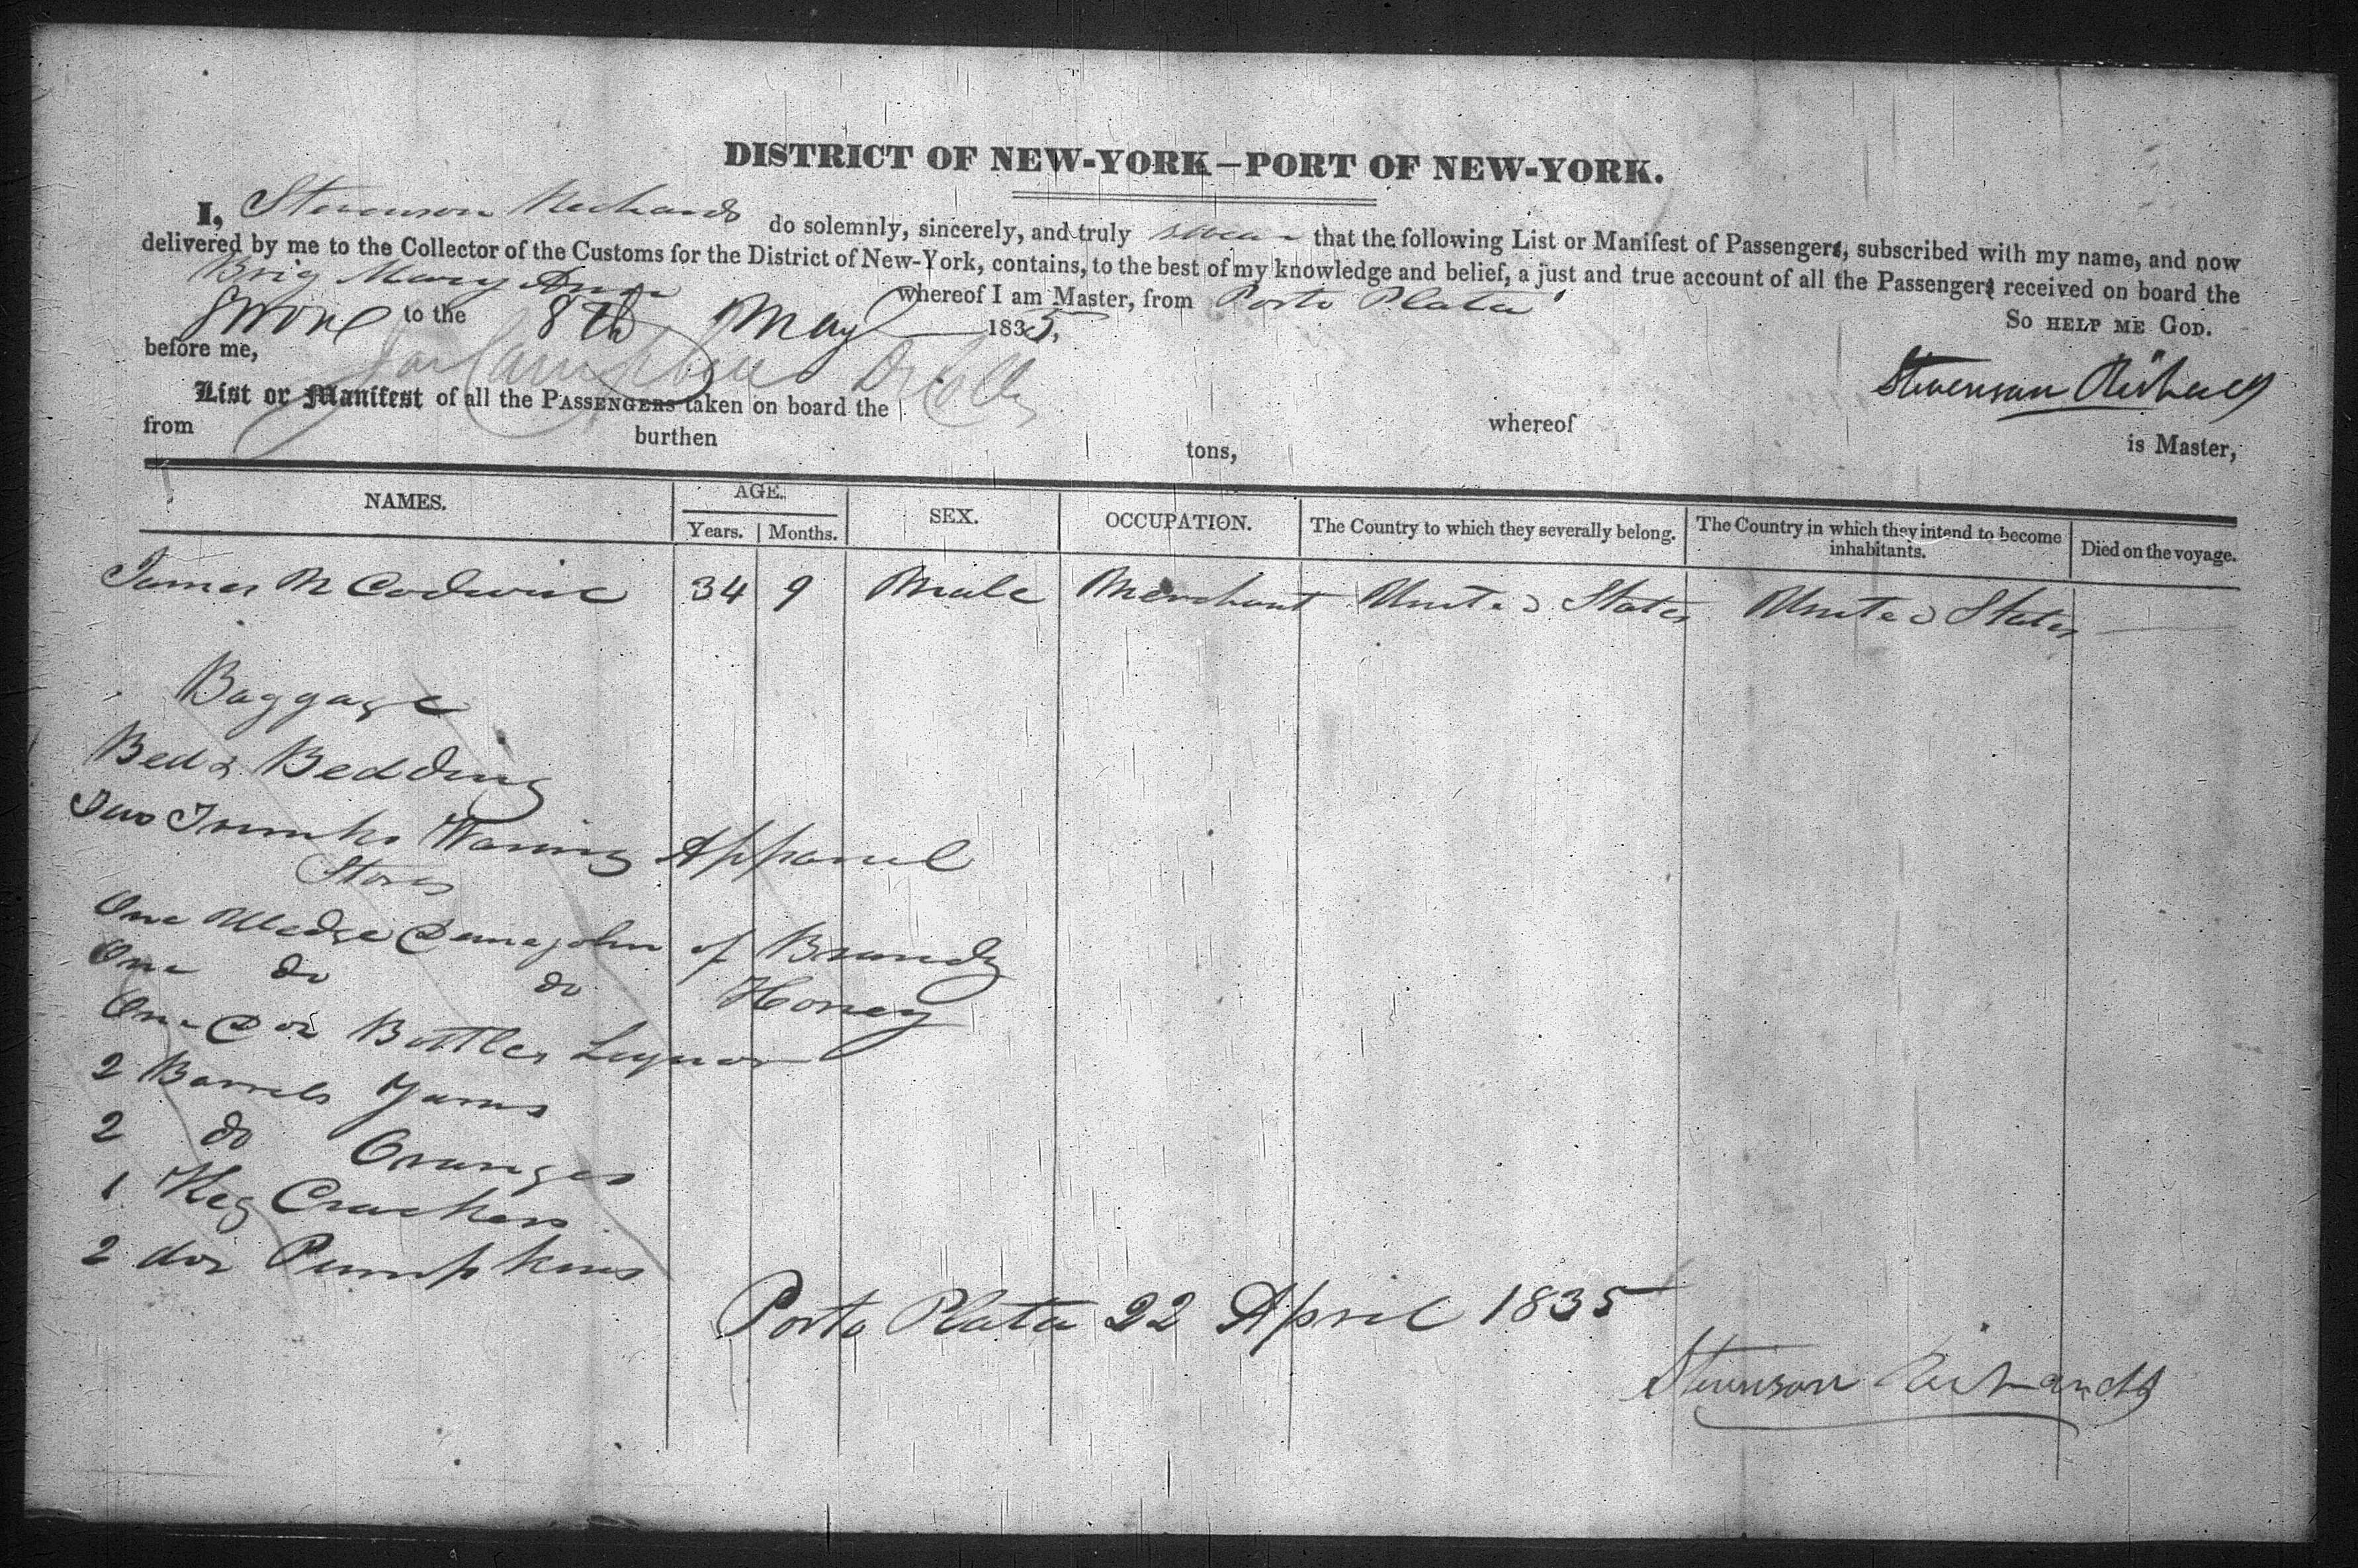 DISTRICT OF NEW-YORK—PORT OF NEW-YORK.
I, Stevenson Richards do solemnly, sincerely, and truly swear that the following List or Manifest of Passengers, subscribed with my name, and now
delivered by me to the Collector of the Customs for the District of New-York, contains, to the best of my knowledge and belief, a just and true account of all the Passengers received on board the
Brig Mary Ann whereof I am Master, from Porto Plata
Swore to the 8th May 1835. So HELP ME GOD.
before me,
Stevenson Richards
List or Manifest of all the PASSENGERS taken on board the whereof is Master,
from burthen tons,
NAMES. AGE. SEX. OCCUPATION. The Country to which they severally belong. The Country in which they intend to become inhabitants. Died on the voyage.
Years. Months.
James M Codwise 34 9 Male Merchant United States United States
Baggage
Bed & Bedding
Two Trunks Waring Apparel
Stores
One Demejohn of Brandy
One do do Honey
One Doz Bottles Liquor
2 Barrels Yams
2 do Oranges
1 Keg Crackers
2 doz Pumpkins
Porto Plata 22 April 1835
Stevenson Richards